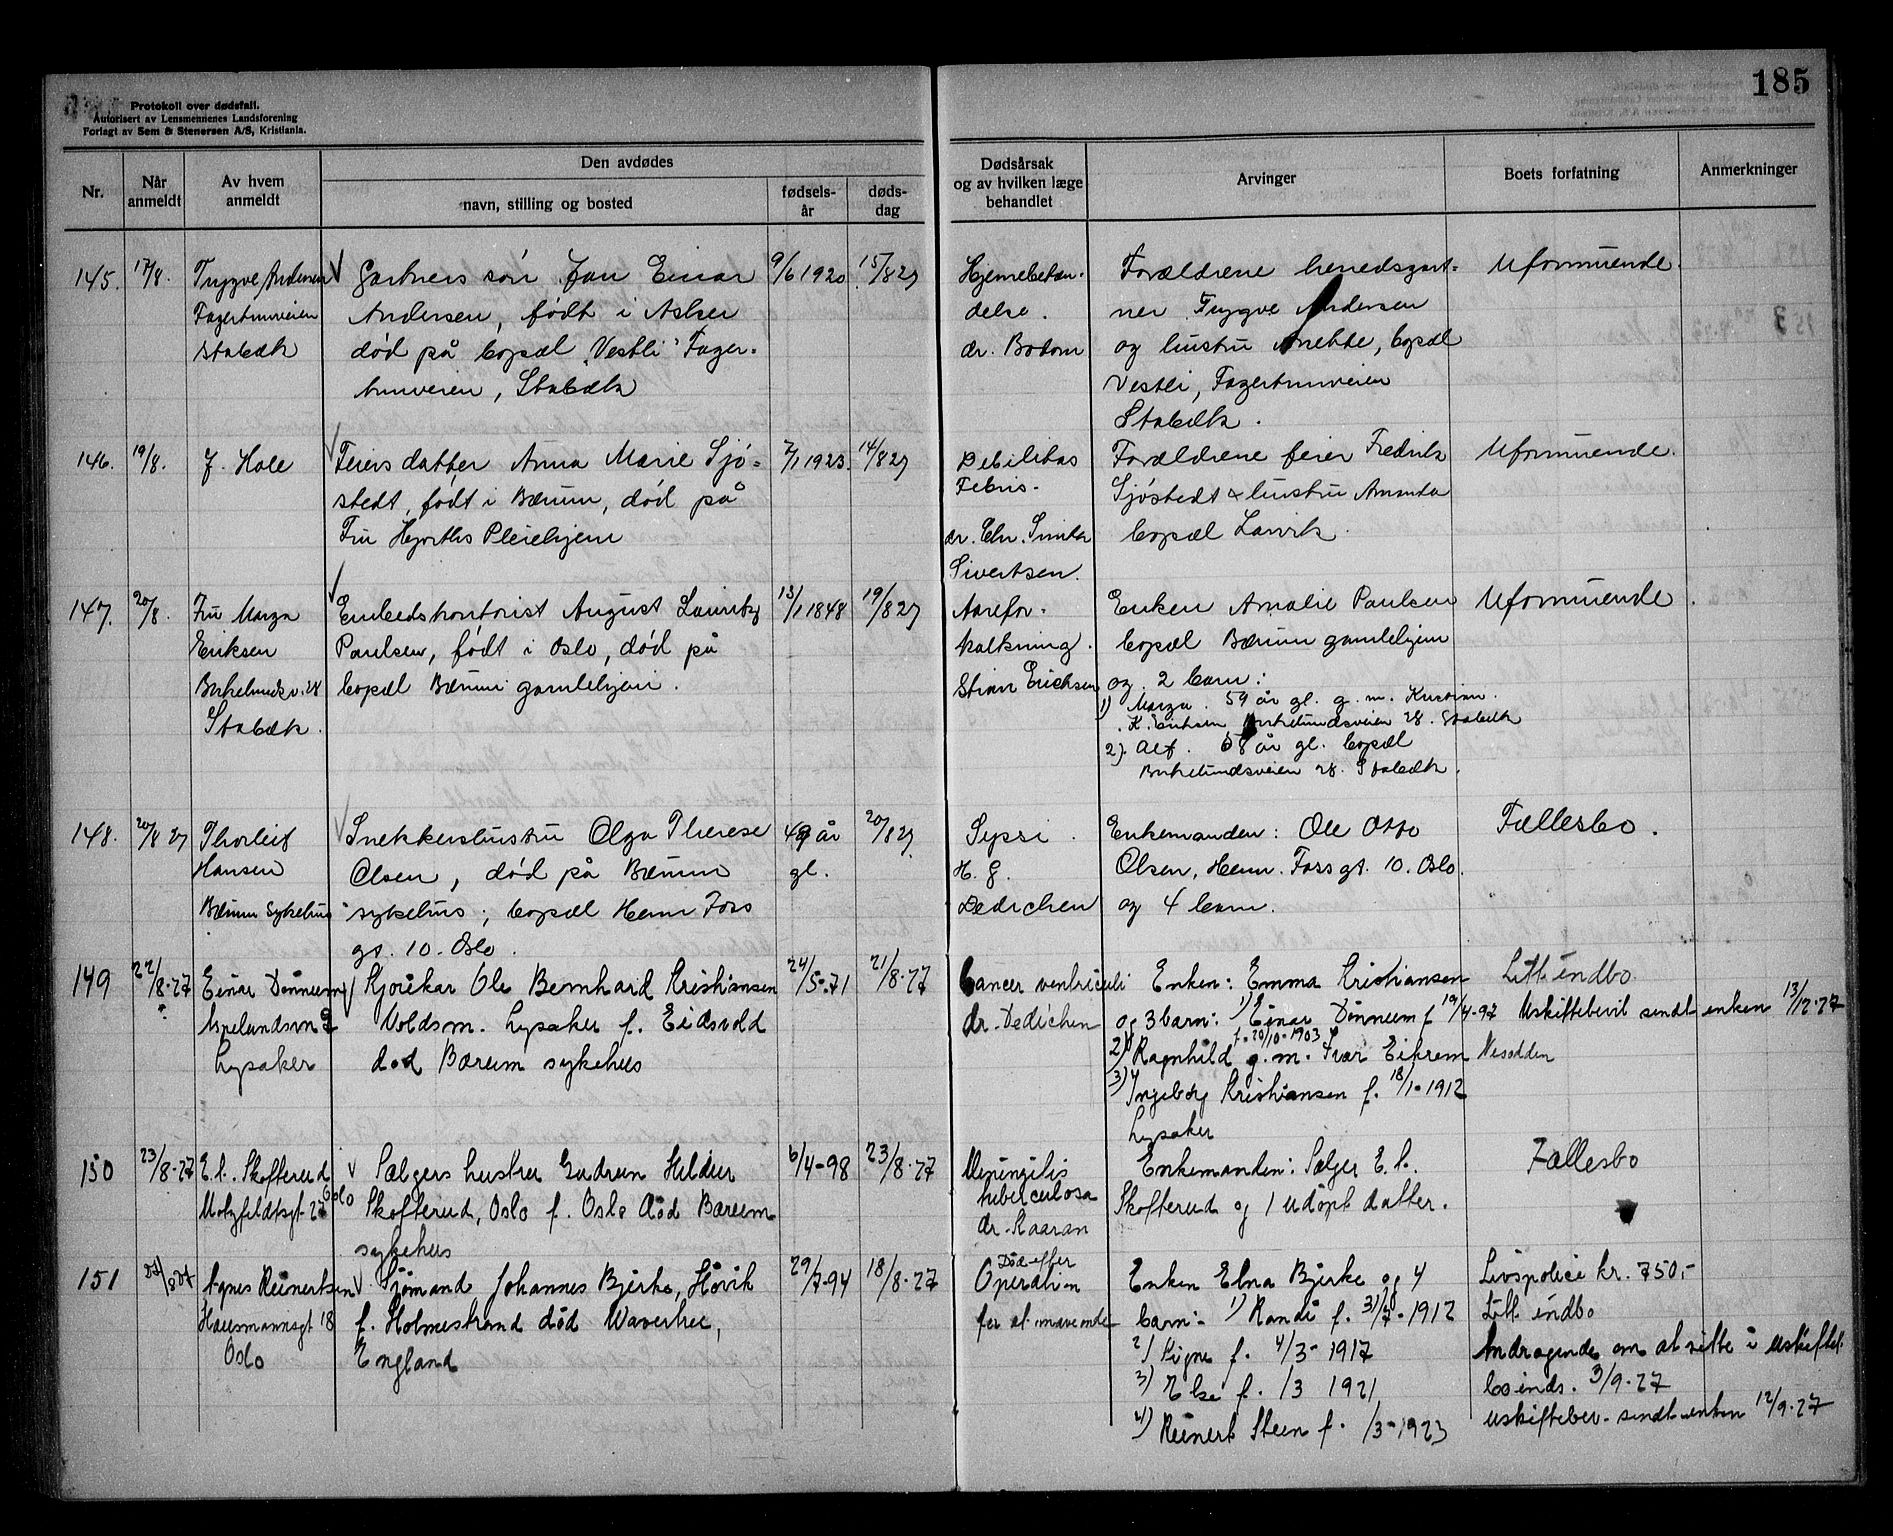 185
Protokoll over dødsfall.
Autorisert av Lensmennenes Landsforening
Forlagt av Sem & Stenersen A/S, Kristiania.
Nr.
Når anmeldt
Av hvem anmeldt
Den avdødes
navn, stilling og bosted
fødsels-år
døds-dag
Dødsårsak og av hvilken læge behandlet
Arvinger
Boets forfatning
Anmerkninger
145.
17/8.
Trygve Andersen
Fagertunveien
Stabæk
Gartners søn Jan Einar
Andersen, født i Asker
død på bopæl "Vestli" Fager-
tunveien, Stabæk
9/6 1920
15/8 27
Hjernebetæn-
delse.
dr. Botom
Forældrene herredsgart-
ner Trygve Andersen
og hustru Anethe, bopæl
Vestli, Fagertunveien
Stabæk.
Uformuende.
146.
19/8.
J. Hole
Feiers datter Anna Marie Sjö-
stedt, født i Bærum, død på
Fru Hjorths Pleiehjem
7/1 1923.
14/8 27
Debilitas
Febris.
dr. Chr.
Sivertsen.
Forældrene feier Fredrik
Sjöstedt & hustru Amanda
bopæl Larvik.
Uformuende.
147.
20/8.
Fru Marga
Eriksen
Birkelundsv. 28
Stabæk.
Embedskontorist August Lauritz
Paulsen, født i Oslo, død på
bopæl Bærum gamlehjem.
13/1 1848
19/8 27
Aarefor-
kalkning.
Stian Erichsen
Enken Amalie Paulsen
bopæl Bærum gamlehjem
og 2 barn:
1) Marga. 59 år gl. g. m. Kristian.
K. Eriksen Birkelundsveien 28. Stabæk
2) Alf. 58 år gl. bopæl
Birkelundsveien 28. Stabæk.
Uformuende.
148.
20/8 27
Thorleif
Hansen
Bærum Sykehus
Snekkershustru Olga Therese
Olsen, død på Bærum
sykehus; bopæl Herm Foss
gt. 10. Oslo.
49 år
gl.
20/8 27
Sepsi.
H. G.
Dedichen
Enkemanden: Ole Otto
Olsen, Herm. Foss gt. 10. Oslo.
og 4 barn.
Fællesbo.
149
22/8-27
Einar Dønnum
Lysaker
Kjørekar Ole Bernhard Kristiansen
Voldsm. Lysaker f. Eidsvold
død Bærum sykehus
24/5-71
21/8-27
Cancer ventriculi
dr. Dedichen
Enken: Emma Kristiansen
og 3 barn: 1) Einar Dønnum f 19/4-97
f. 20/10-1903
2) Ragnhild g. m. Ivar Eikrem Nesodden
3) Ingeborg Kristiansen f. 18/1-1912
Lysaker
Litt indbo
Uskiftebevil sendt enken 13/12-27
150
23/8-27
E. L. Skofterud
Motzfeldtsgt 27 Oslo
Sælgers hustru Gudrun Hildur
Skofterud, Oslo f. Oslo død Bærum
sykehus
6/4-98
23/8-27
Meningitis
tuberculosa
dr. Kaaran
Enkemanden: Sælger E. L.
Skofterud og 1 udøpt datter.
Fællesbo
151
27/8 27
Agnes Reinertsen
Hausmannsgt 18
Oslo
Sjømand Johannes Bjerke, Høvik
f. Holmestrand død Wavertree,
England
29/7-94
18/8-27
Død efter
Operation
for
Enken Elna Bjerke og 4
barn: 1) Randi f. 31/7-1912
2) Signe f. 4/3-1917
3) Else f. /3 1921
4) Reinert Steen f. /3-1923
Livspolice kr. 750,-
Litt indbo
Andragende om at sitte i uskiftet
bo inds. 3/9-27
uskiftebev. sendt enken 12/9-27